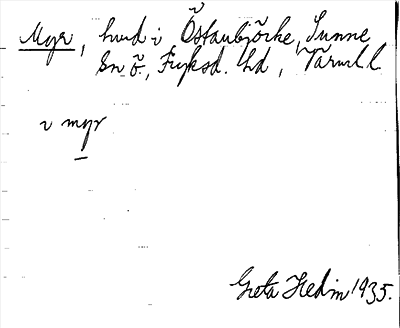 Myr, hud i Östanbjörke, Sunne
sn ö., Fryksd. hd, Värml. l.
i myr
Greta Hedin 1935.